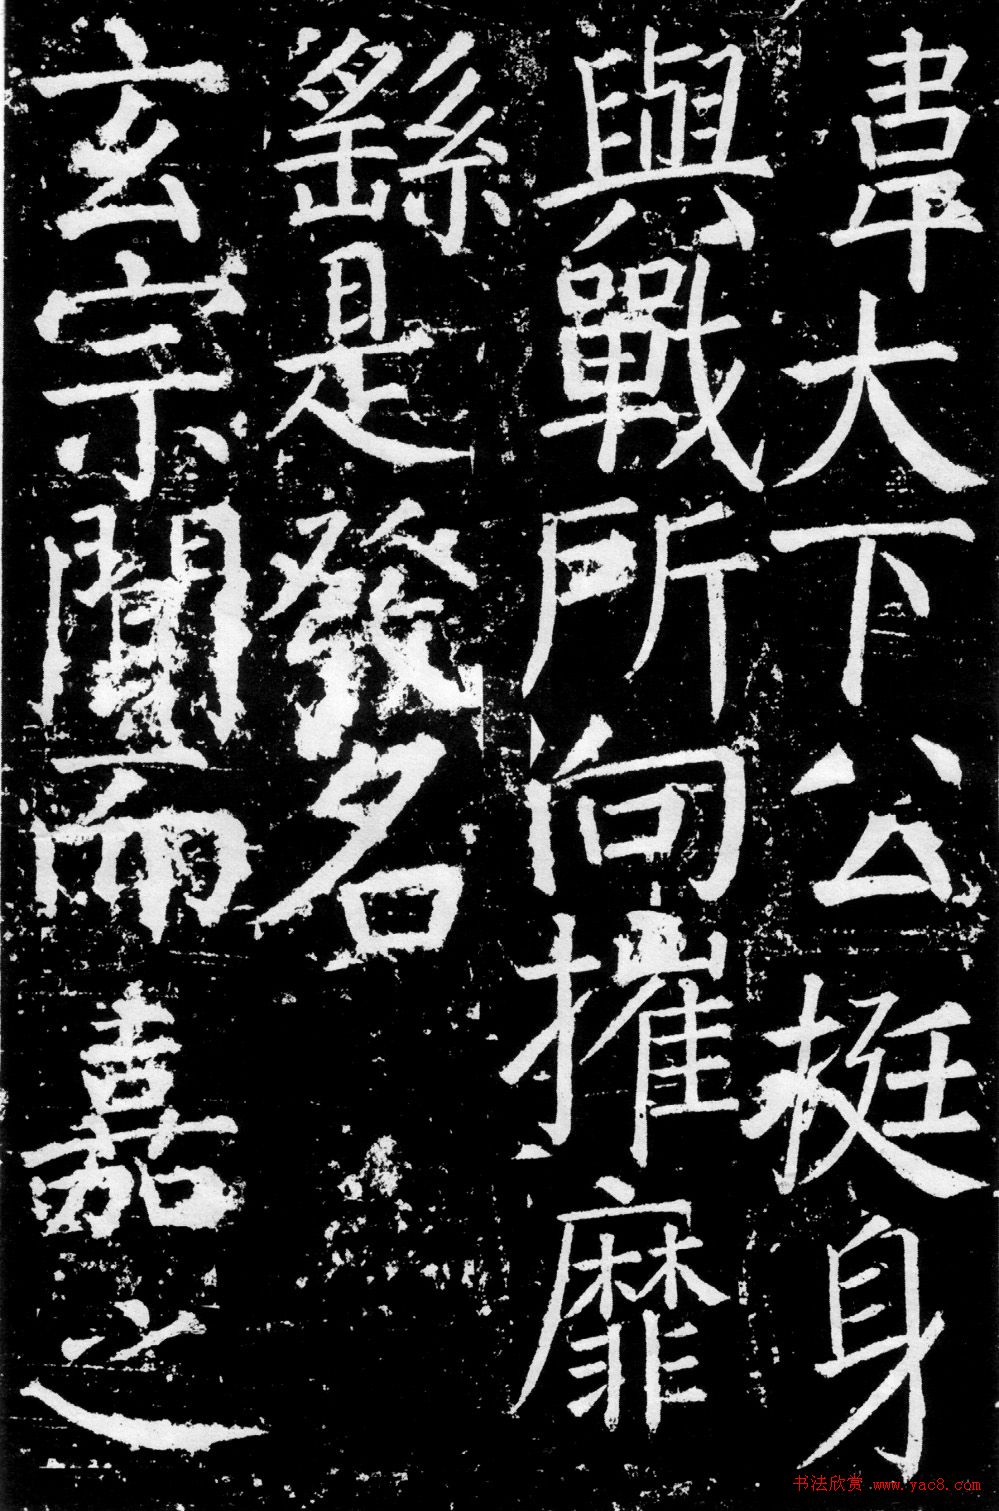 韋大下公挺身
與戰所向摧靡
繇是發名
玄宗聞而嘉之
书法欣赏 www.yac8.com